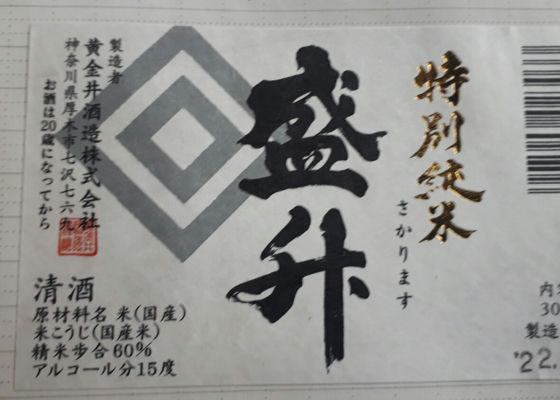 特別純米
さかります
盛升
製造者
黄金井酒造株式会社
神奈川県厚木市七沢七六九
お酒は20歳になってから
清酒
原材料名 米(国産)
米こうじ(国産米)
精米歩合60%
アルコール分15度
内容
30
製造
'22.